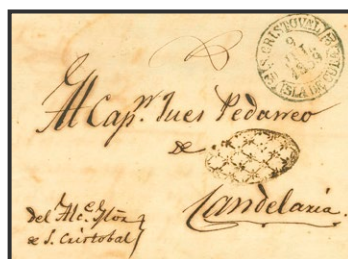 S. CRISTOVAL
9
JUL
1849
ISLA DE CUBA
Al Capn. Jues Pedaneo
de
Candelaria.
del Alce.
de S. Cristobal